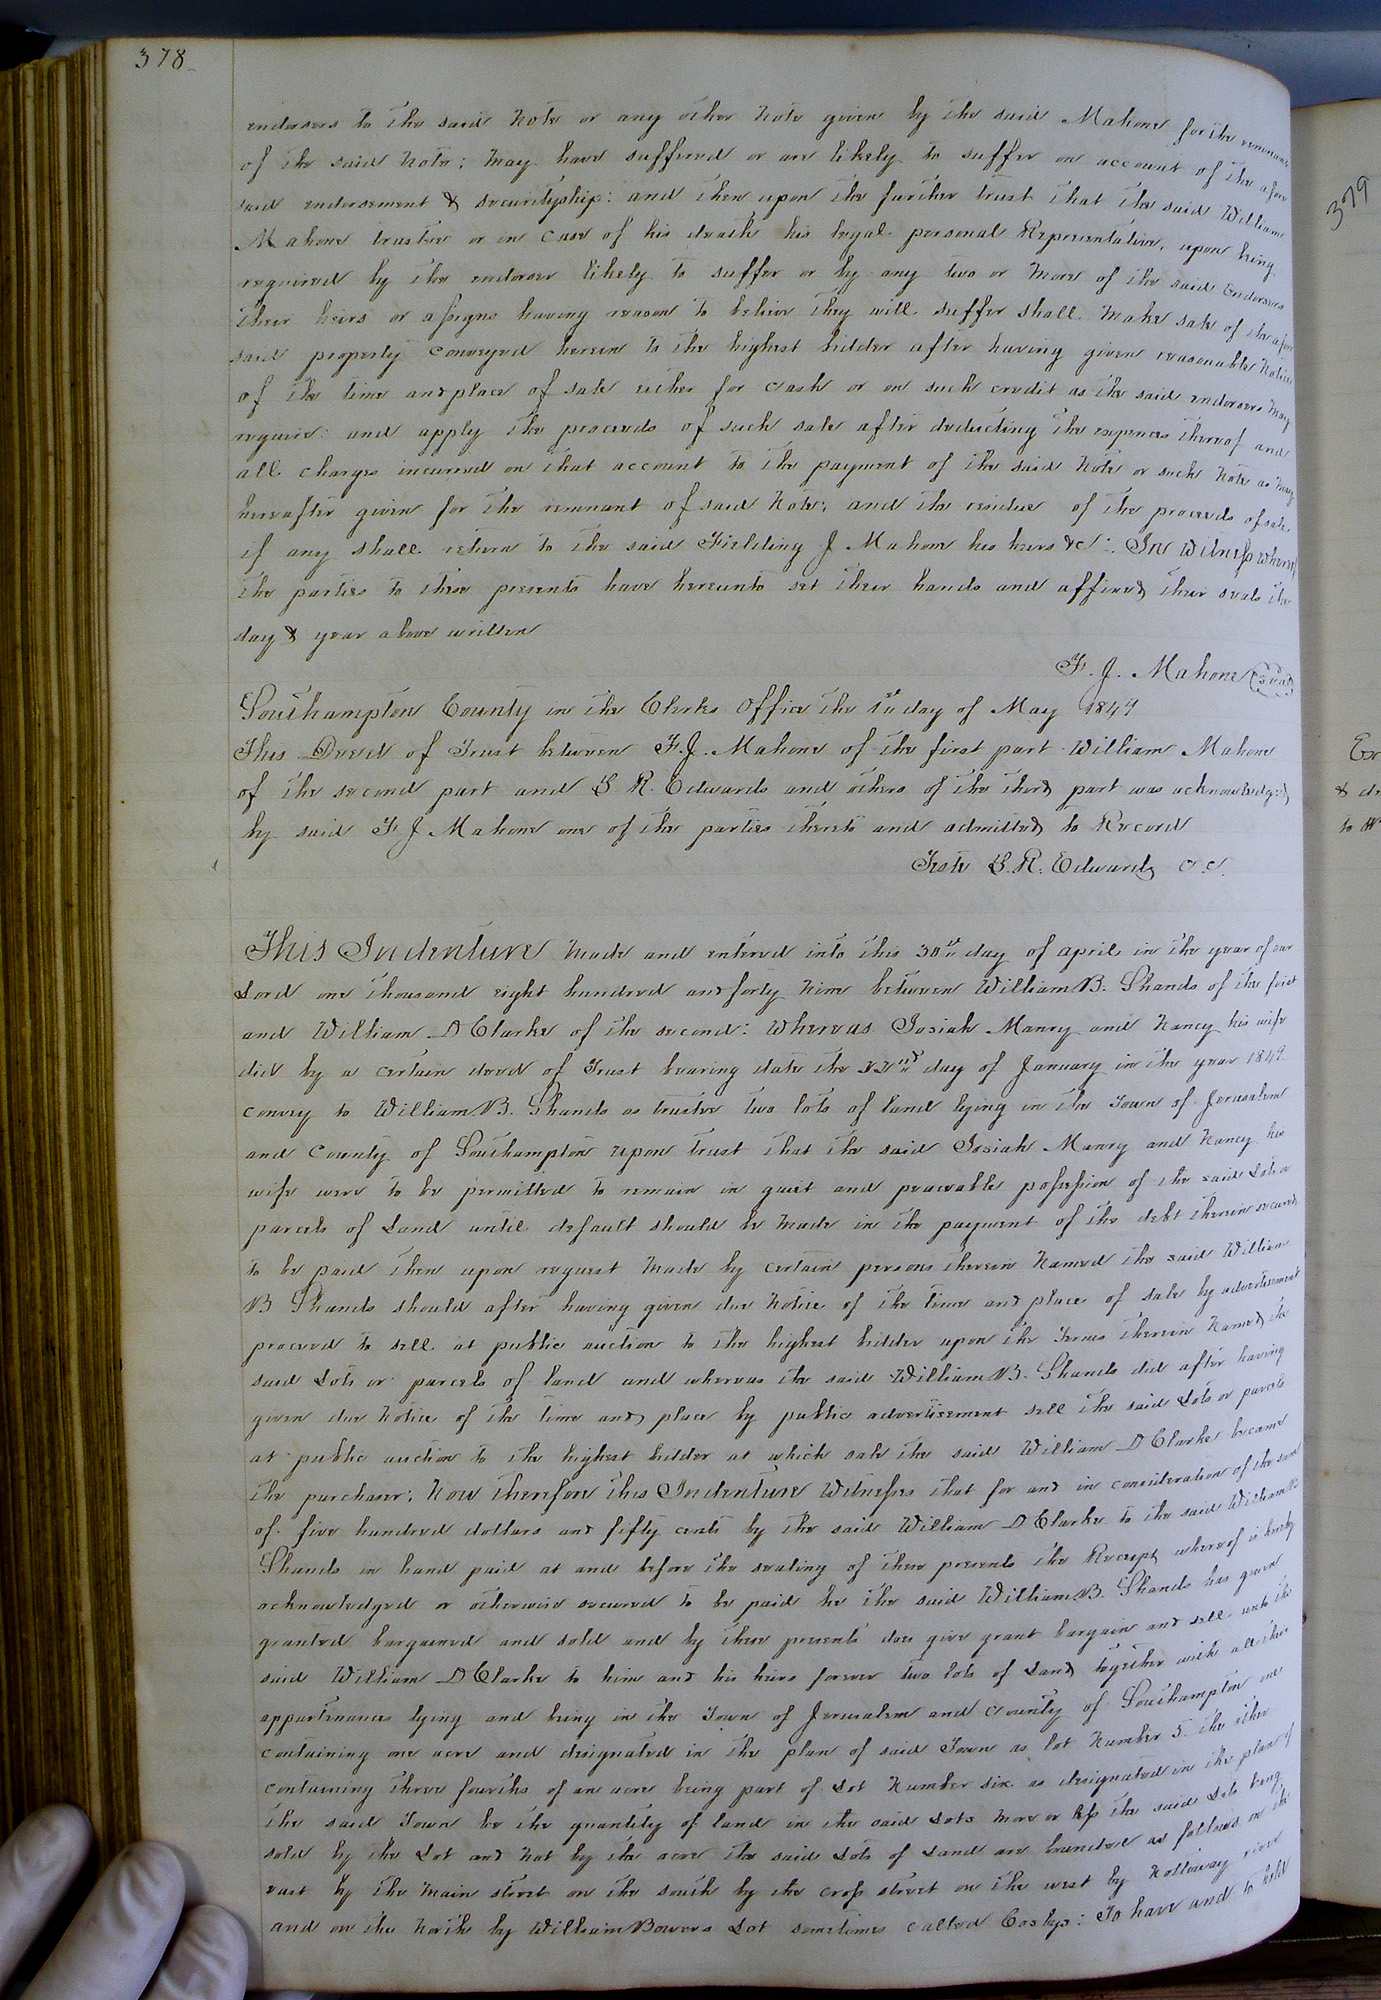 378
endorsers to the said Note or any other Note given by the said Mahone for the remnant
of the said Note; may have suffered or are likely to suffer on account of the afore
said endorsement & securityship: and then upon the further trust that the said William
Mahone trustee or in case of his death his legal personal Representative, upon being
required by the endorser likely to suffer or by any two or more of the said Endorsers
their heirs or assigns having reason to believe they will suffer shall make sale of the afore
said property conveyed herein to the highest bidder after having given reasonable Notice
of the time and place of sale either for cash or on such credit as the said endorsers may
require: and apply the proceeds of such sale after deducting the expences thereof and
all charges incurred on that account to the payment of the said Note or such Note as may
hereafter given for the remnant of said Note; and the residue of the proceeds of sale
if any shall return to the said Fielding J Mahone his heirs &c: In Witness whereof
the parties to these presents have hereunto set their hands and affixed their seals the
day & year above written
F. J. Mahone (Seal)
Southampton County in the Clerks Office the 1st day of May 1849
This Deed of Trust between F. J. Mahone of the first part William Mahone
of the second part and L. R. Edwards and others of the third part was acknowledged
by said F J Mahone one of the parties thereto and admitted to Record
Teste L. R. Edwards C.C.
This Indenture made and entered into this 30th day of april in the year of our
Lord one thousand eight hundred and forty Nine between William B. Shands of the first
and William D Clarke of the second: Whereas Josiah Manry and Nancy his wife
did by a certain deed of Trust bearing date the 22nd day of January in the year 1849
convey to William B. Shands as trustee two lots of land lying in the Town of Jerusalem
and County of Southampton upon trust that the said Josiah Manry and Nancy his
wife were to be permitted to remain in quiet and peaceable possession of the said Lots or
parcels of Land until default should be made in the payment of the debt therein secured
to be paid then upon request made by certain persons therein Named the said William
B Shands should after having given due Notice of the time and place of sale by advertisement
proceed to sell at public auction to the highest bidder upon the Terms therein Named the
said Lots or parcels of land and whereas the said William B. Shands did after having
given due Notice of the time and place by public advertisement sell the said Lots or parcels
at public auction to the highest bidder at which sale the said William D Clarke became
the purchaser; Now therefore this Indenture Witnesses that for and in consideration of the sum
of five hundred dollars and fifty cents by the said William D Clarke to the said William B
Shands in hand paid at and before the sealing of these presents the Receipt whereof is hereby
acknowledged or otherwise secured to be paid he the said William B. Shands has given
granted bargained and sold and by these presents does give grant bargain and sell unto the
said William D Clarke to him and his heirs forever two lots of Land together with all their
appurtenances lying and being in the Town of Jerusalem and County of Southampton one
containing one acre and designated in the plan of said Town as lot Number 5. the other
containing three fourths of an acre being part of Lot Number six as designated in the plan of
the said Town be the quantity of land in the said Lots more or less the said Lots being
sold by the Lot and Not by the acre the said Lots of Land are bounded as follows on the
east by the main street on the south by the cross street on the west by Nottoway river
and on the North by William Bowers Lot sometimes called Cosbys: To have and to hold
379
Ex
& de
to W